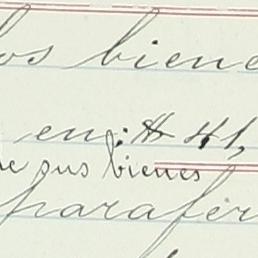 los biene
en: $ 41,
sus bienes
parafer